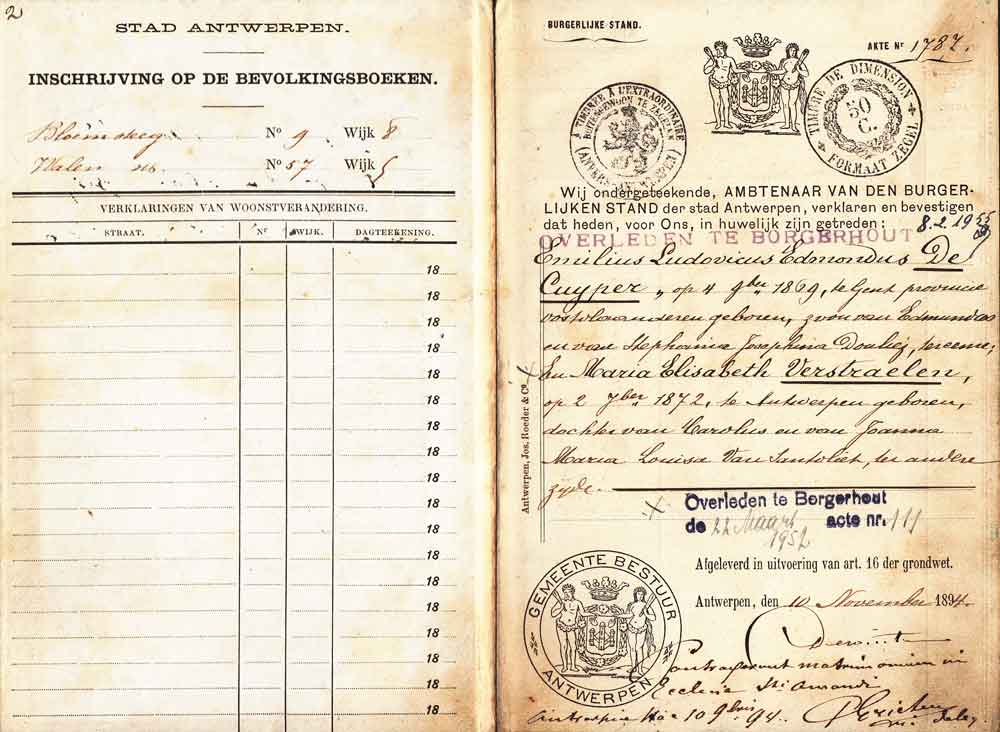 2
STAD ANTWERPEN.
INSCHRIJVING OP DE BEVOLKINGSBOEKEN.
No 9 Wijk 8
Walen No 57 Wijk 5
VERKLARINGEN VAN WOONSTVERANDERING.
STRAAT. Nr WIJK. DAGTEEKENING.
18
18
18
18
18
18
18
18
18
18
18
18
18
18
18
18
18
18
BURGERLIJKE STAND.
AKTE Nr 1787.
A TIMBRER A L'EXTRAORDINAIRE
BUITENGEWOON TE ZEGELEN
TIMBRE DE DIMENSION
50
C.
FORMAAT ZEGEL
Wij ondergeteekende, AMBTENAAR VAN DEN BURGER-
LIJKEN STAND der stad Antwerpen, verklaren en bevestigen
dat heden, voor Ons, in huwelijk zijn getreden:
8.2.1955
OVERLEDEN TE BORGERHOUT
Emilius Ludovicus Edmondus De
Cuyper, op 4 9ber 1869, te Gent provincie
Oostvlaanderen geboren, zoon van Edmundus
en van Stephania Josephina ter eene;
En Maria Elisabeth Verstraelen,
op 2 7ber 1872, te Antwerpen geboren,
dochter van Carolus en van Joanna
Maria Louisa Van Santvliet, ter andere
zijde.
Overleden te Borgerhout
de 22 Maart 1952 acte nr. 111
Afgeleverd in uitvoering van art. 16 der grondwet.
Antwerpen, den 10 November 1894.
GEMEENTE BESTUUR
ANTWERPEN
Contraxerunt matrimonium in
Ecclesia Sti Amandi
Antverpiae hac 10 9bris 94.
Antwerpen, Jos. Roeder & Co.